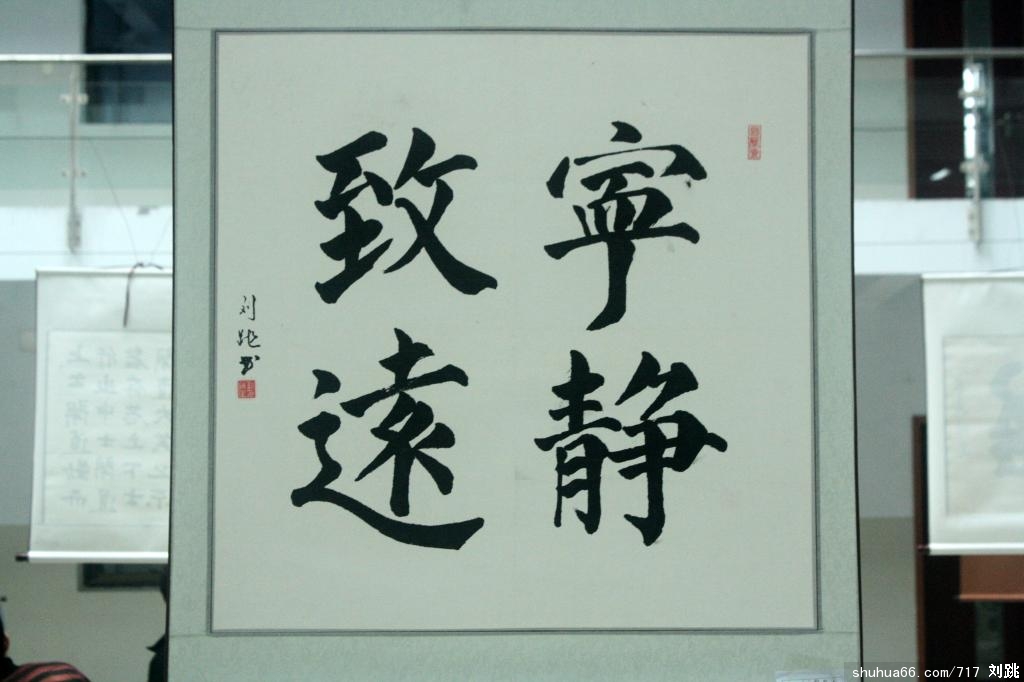 寧静
致遠
刘跳书
shuhua66.com/717 刘跳